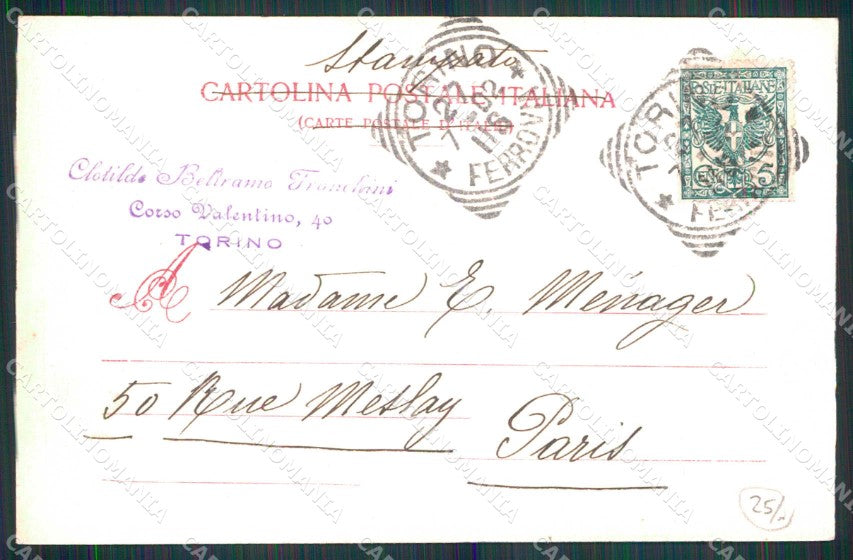 Stampato
CARTOLINA POSTALE ITALIANA
(CARTE POSTALE D'ITALIE)
TORINO
FERROVIA
TORINO
POSTE ITALIANE
CENT. 5
Clotilde Beltramo Tronchini
Corso Valentino, 40
TORINO
A Madame E. Ménager
50 Rue Meslay
Paris
25/-
CARTOLINOMANIA